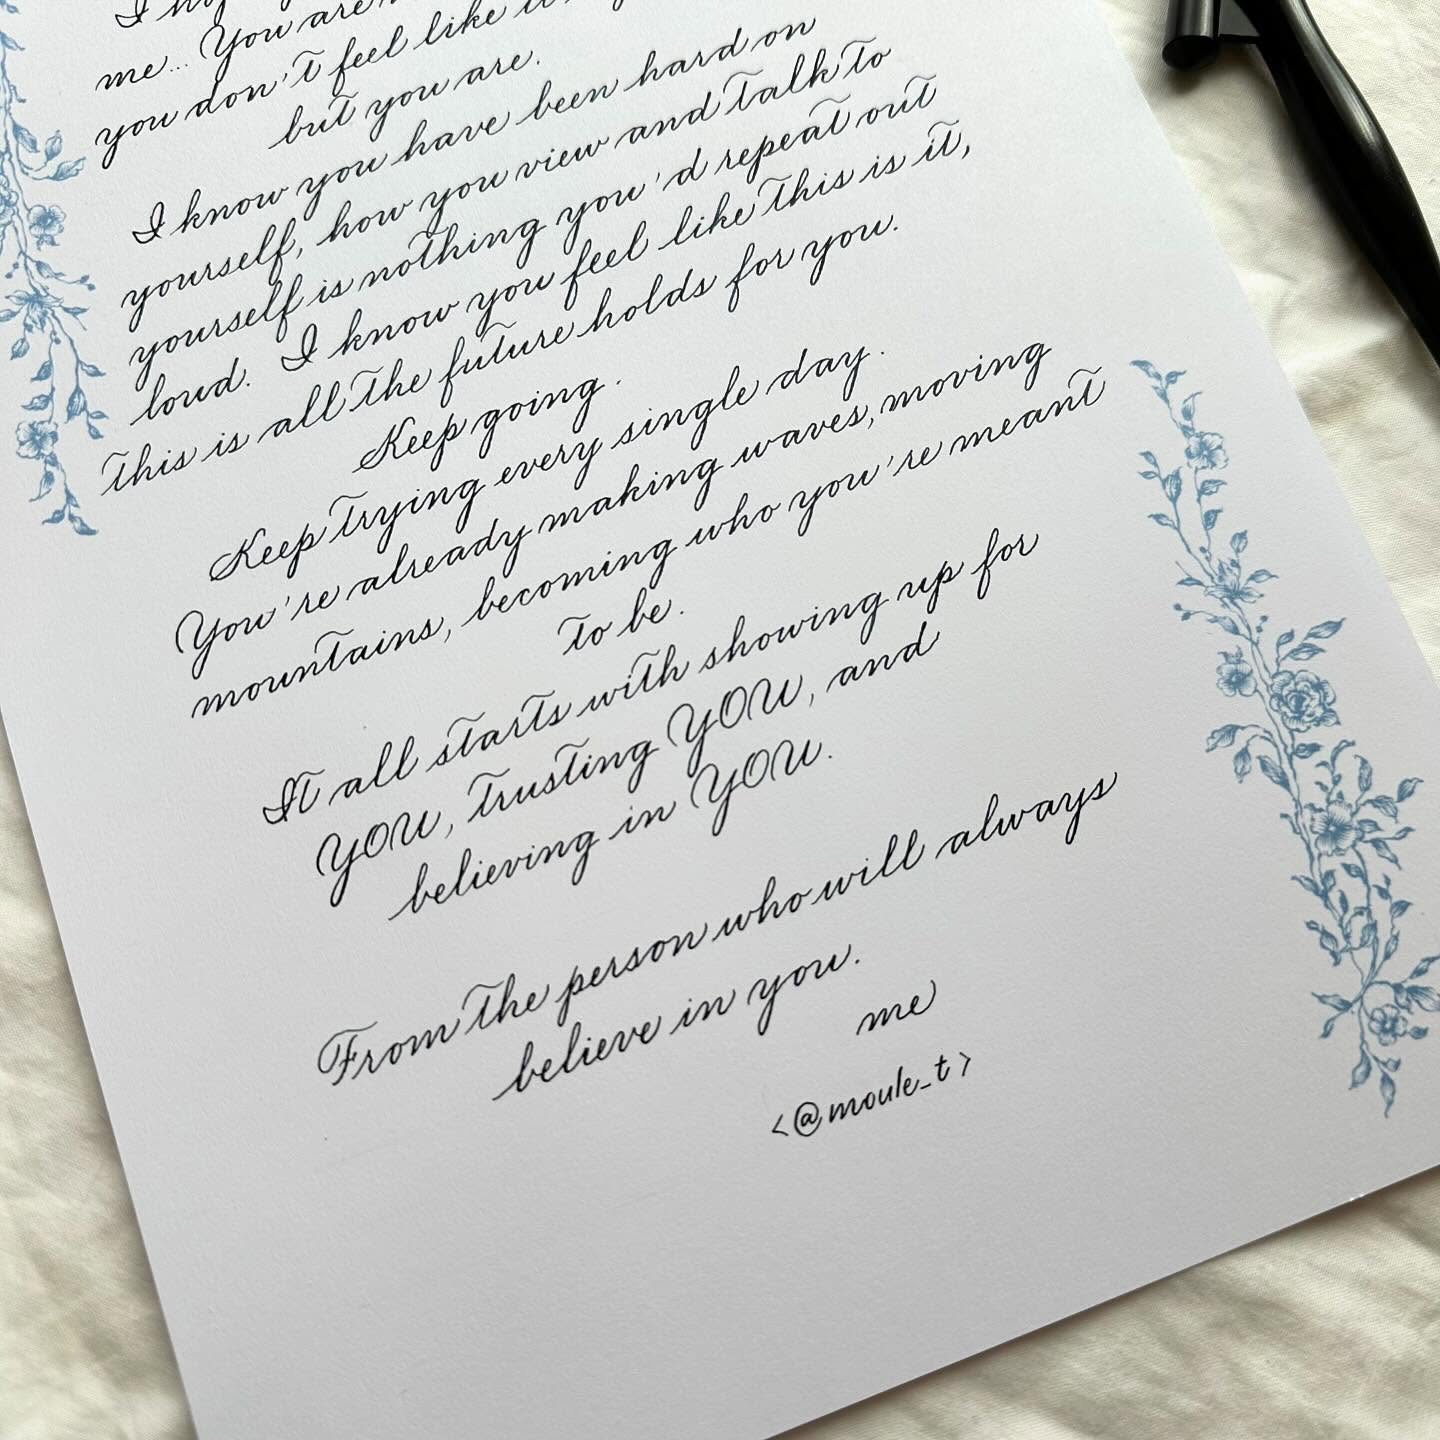 me... You are
you don't feel like
but you are.
I know you have been hard on
yourself, how you view and talk to
yourself is nothing you'd repeat out
loud. I know you feel like this is it,
this is all the future holds for you.
Keep going.
Keep trying every single day.
You're already making waves, moving
mountains, becoming who you're meant
to be.
It all starts with showing up for
YOU, trusting YOU, and
believing in YOU.
From the person who will always
believe in you.
me
<@moule_t>